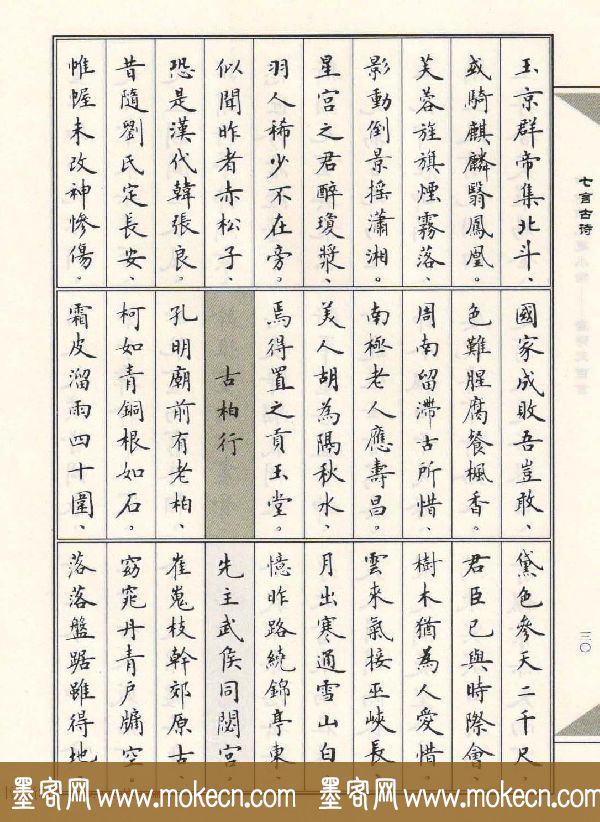 玉京群帝集北斗、
或騎麒麟翳鳳凰。
芙蓉旌旗煙霧落、
影動倒景搖瀟湘。
星宮之君醉瓊漿、
羽人稀少不在旁。
似聞昨者赤松子、
恐是漢代韓張良。
昔隨劉氏定長安、
帷幄未改神慘傷。
國家成敗吾豈敢、
色難腥腐餐楓香。
周南留滯古所惜、
南極老人應壽昌。
美人胡為隔秋水、
焉得置之貢玉堂。
古柏行
孔明廟前有老柏、
柯如青銅根如石。
霜皮溜雨四十圍、
黛色參天二千尺。
君臣已與時際會、
樹木猶為人愛惜。
雲來氣接巫峽長、
月出寒通雪山白。
憶昨路繞錦亭東、
先主武侯同閟宮。
崔嵬枝幹郊原古、
窈窕丹青戶牖空。
落落盤踞雖得地、
七言古诗
三〇
墨客网 www.mokecn.com 墨客网 www.mokecn.com